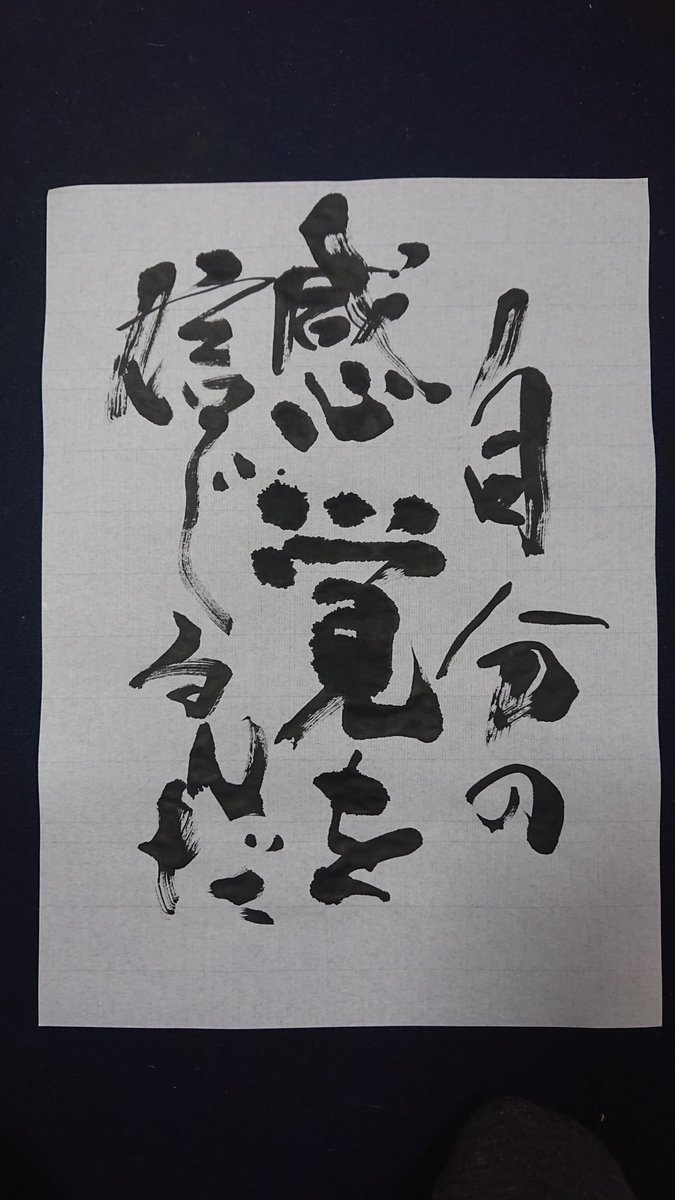 自分の
感覚を
信じるんだ